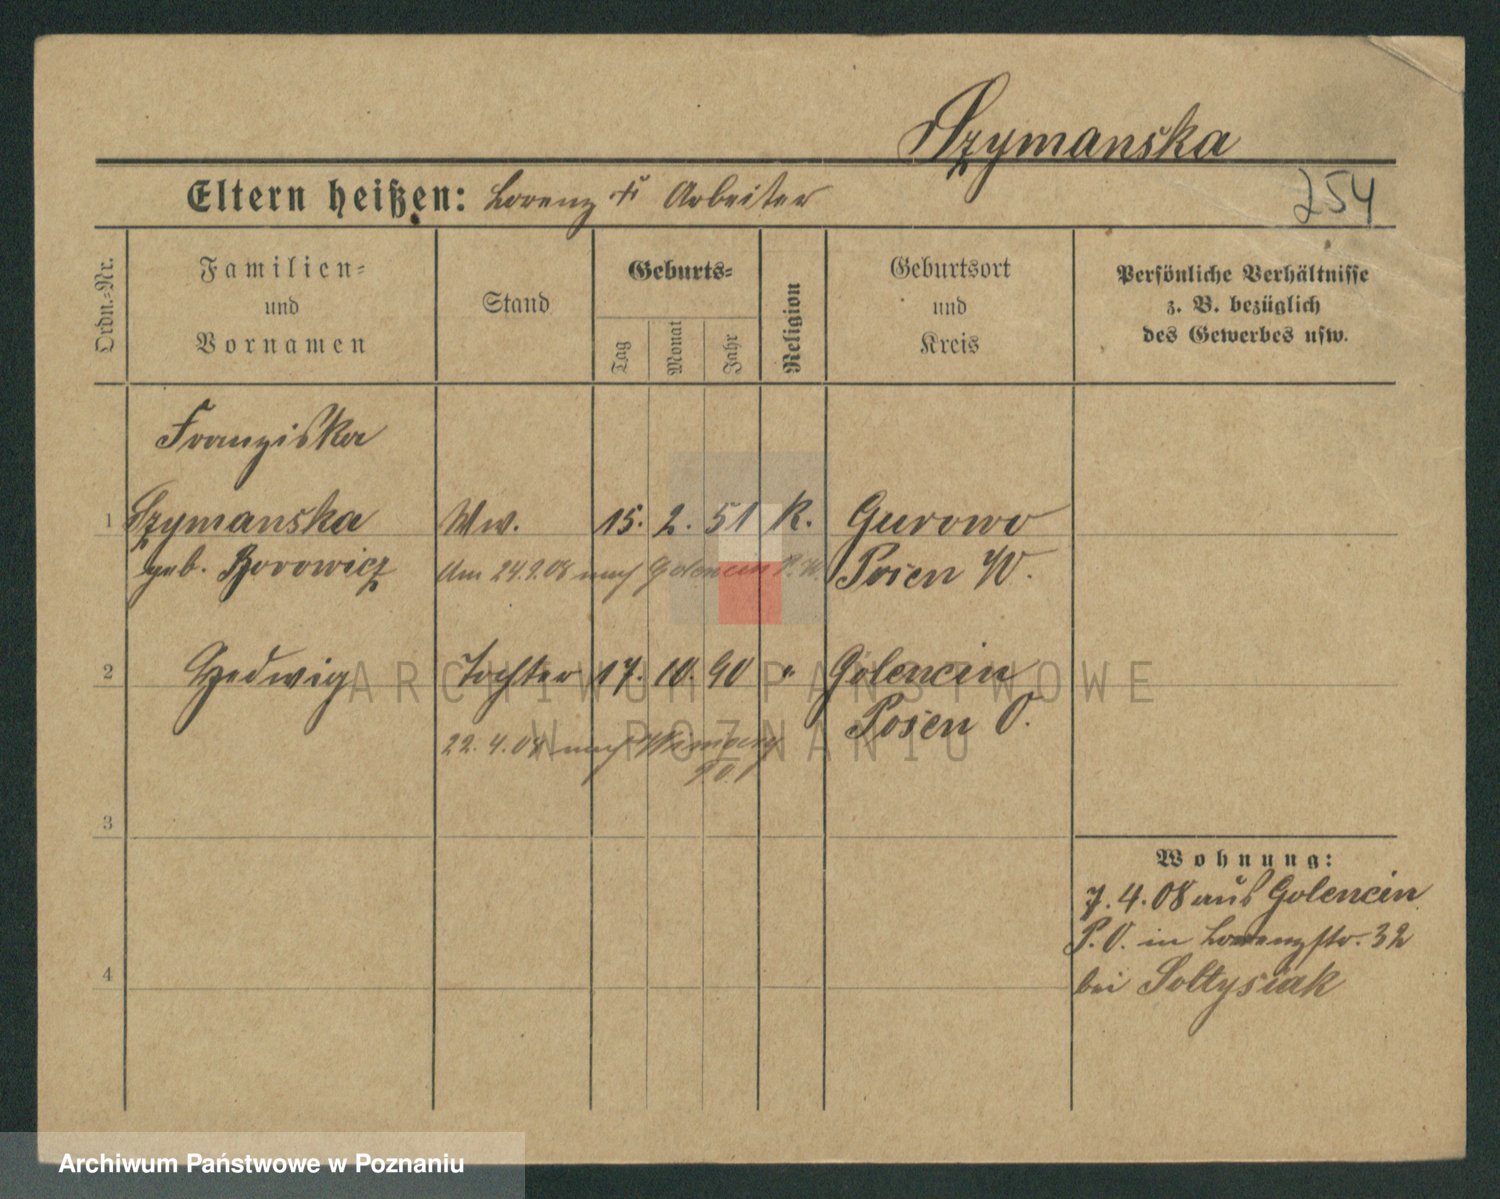 Szymanska
Eltern heißen: Lorenz † Arbeiter
254
Ordn.=Nr.
Familien=
und
Vornamen
Stand
Geburts=
Tag
Monat
Jahr
Religion
Geburtsort
und
Kreis
Persönliche Verhältnisse
z. B. bezüglich
des Gewerbes usw.
Franziska
1 Szymanska Ww. 15. 2. 51 K. Gurowo
geb. Borowicz Am 24.9.08 nach Golencin P. W. Posen W.
2 Hedwig Tochter 17. 10. 90 " Golencin
Posen O.
22. 4. 08 nach
P.O.
3
Wohnung:
7. 4. 08 aus Golencin
P. O. in Lorenzstr. 32
4
bei Soltysiak
ARCHIWUM PAŃSTWOWE
W POZNANIU
Archiwum Państwowe w Poznaniu